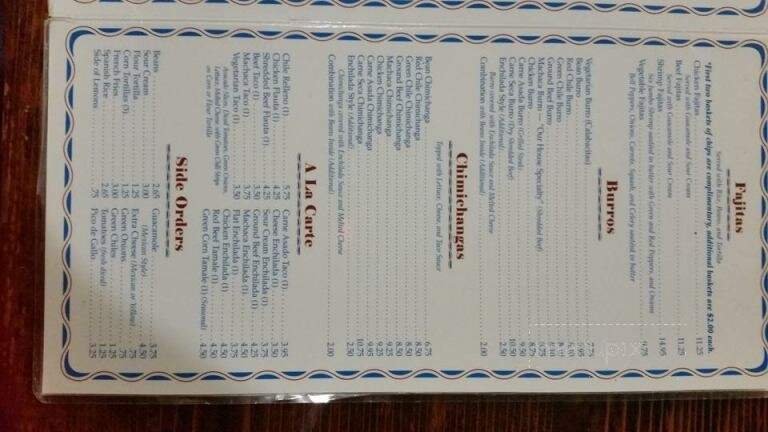 Fajitas
Served with Rice, Beans, and Tortilla
*First two baskets of chips are complimentary, additional baskets are $2.00 each.
Chicken Fajitas 11.25
Served with Guacamole and Sour Cream
Beef Fajitas 11.25
Served with Guacamole and Sour Cream
Shrimp Fajitas 14.95
Six Jumbo Shrimp sautéed in butter with Green and Red Peppers, and Onions
Vegetable Fajitas 9.75
Bell Peppers, Onions, Carrots, Squash, and Celery sautéed in butter
Burros
Vegetarian Burro (Calabacitas) 7.75
Bean Burro
Red Chile Burro
Green Chile Burro
Ground Beef Burro
Machaca Burro — "Our House Specialty" (Shredded Beef)
Chicken Burro 8.75
Carne Asada Burro (Grilled Steak) 9.50
Carne Seca Burro (Dry Shredded Beef) 10.50
Enchilada Style (Additional) 2.50
Burro covered with Enchilada Sauce and Melted Cheese
Combination with Items Inside (Additional) 2.00
Chimichangas
Topped with Lettuce, Cheese, and Taco Sauce
Bean Chimichanga 6.75
Red Chile Chimichanga 8.50
Green Chile Chimichanga 8.50
Ground Beef Chimichanga 8.50
Machaca Chimichanga 9.25
Chicken Chimichanga 9.25
Carne Asada Chimichanga 9.95
Carne Seca Chimichanga 10.75
Enchilada Style (Additional) 2.50
Chimichanga covered with Enchilada Sauce and Melted Cheese
Combination with Items Inside (Additional) 2.00
A La Carte
Chile Relleno (1) 5.75
Chicken Flauta (1) 4.25
Shredded Beef Flauta (1) 4.25
Beef Taco (1) 3.50
Machaca Taco (1) 3.75
Vegetarian Taco (1) 3.50
Avocado Slices, Diced Tomatoes, Green Onions,
Lettuce, Melted Cheese with Green Chili Strips
on Corn or Flour Tortilla
Carne Asado Taco (1) 3.95
Cheese Enchilada (1) 3.50
Sour Cream Enchilada (1) 3.75
Ground Beef Enchilada (1) 4.25
Machaca Enchilada (1) 4.50
Flat Enchilada (1) 3.75
Chicken Enchilada (1) 4.50
Red Beef Tamale (1) 4.50
Green Corn Tamale (1) (Seasonal) 4.50
Side Orders
Beans 2.65
Sour Cream 3.00
Flour Tortilla 1.25
Corn Tortillas (3) 1.25
French Fries 3.00
Spanish Rice 2.65
Side of Lemons .75
Guacamole 3.75
(Mexican Style) 4.50
Extra Cheese (Mexican or Yellow) .75
Green Onions .75
Green Chiles 1.25
Tomatoes (fresh diced) 1.25
Pico de Gallo 3.25